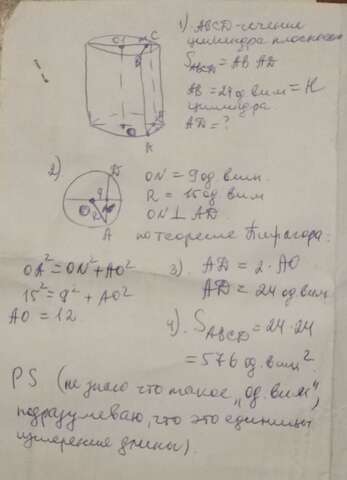 1) ABCD-сечение
цилиндра плоскостью
S ABCD = AB·AD
AB = 24 од вим = H
цилиндра.
AD = ?
O1 M C
O
A
2)
ON = 9 од вим.
R = 15 од вим
ON ⊥ AD.
по теореме Пифагора:
D
9
O
R
A
OA² = ON² + AO²
15² = 9² + AO²
AO = 12
3) AD = 2·AO
AD = 24 од вим
4) S ABCD = 24·24
= 576 од. вим².
PS (не знаю что такое "од. вим",
подразумеваю, что это единицы
измерения длины).